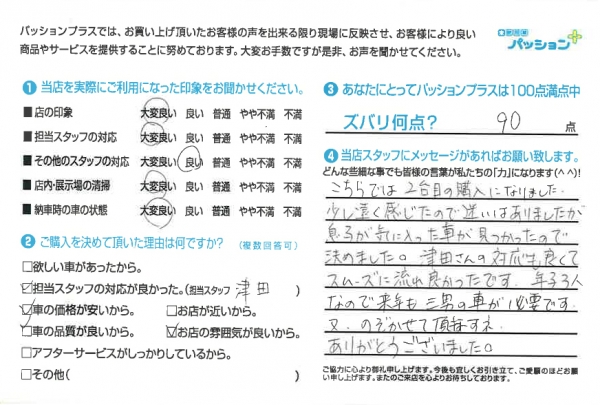 パッションプラスでは、お買い上げ頂いたお客様の声を出来る限り現場に反映させ、お客様により良い
商品やサービスを提供することに努めております。大変お手数ですが是非、お声を聞かせてください。
パッション
❶ 当店を実際にご利用になった印象をお聞かせください。
■店の印象 大変良い 良い 普通 やや不満 不満
■担当スタッフの対応 大変良い 良い 普通 やや不満 不満
■その他のスタッフの対応 大変良い 良い 普通 やや不満 不満
■店内・展示場の清掃 大変良い 良い 普通 やや不満 不満
■納車時の車の状態 大変良い 良い 普通 やや不満 不満
❷ ご購入を決めて頂いた理由は何ですか? (複数回答可)
□欲しい車があったから。
☑担当スタッフの対応が良かった。(担当スタッフ 津田 )
☑車の価格が安いから。 □お店が近いから。
□車の品質が良いから。 ☑お店の雰囲気が良いから。
□アフターサービスがしっかりしているから。
□その他( )
❸ あなたにとってパッションプラスは100点満点中
ズバリ何点? 90 点
❹ 当店スタッフにメッセージがあればお願い致します。
どんな些細な事でも皆様の言葉が私たちの「力」になります(^^)!
こちらでは2台目の購入になりました。
少し遠く感じたので迷いはありましたが
息子が気に入った車が見つかったので
決めました。津田さんの対応も良くて
スムーズに流れ良かったです。年子3人
なので来年も三男の車が必要です。
又、のぞかせて頂きますネ
ありがとうございました。
ご協力に心より御礼申し上げます。今後も宜しくお引き立て、ご愛顧のほどお願
い申し上げます。またのご来店を心よりお待ちしております。